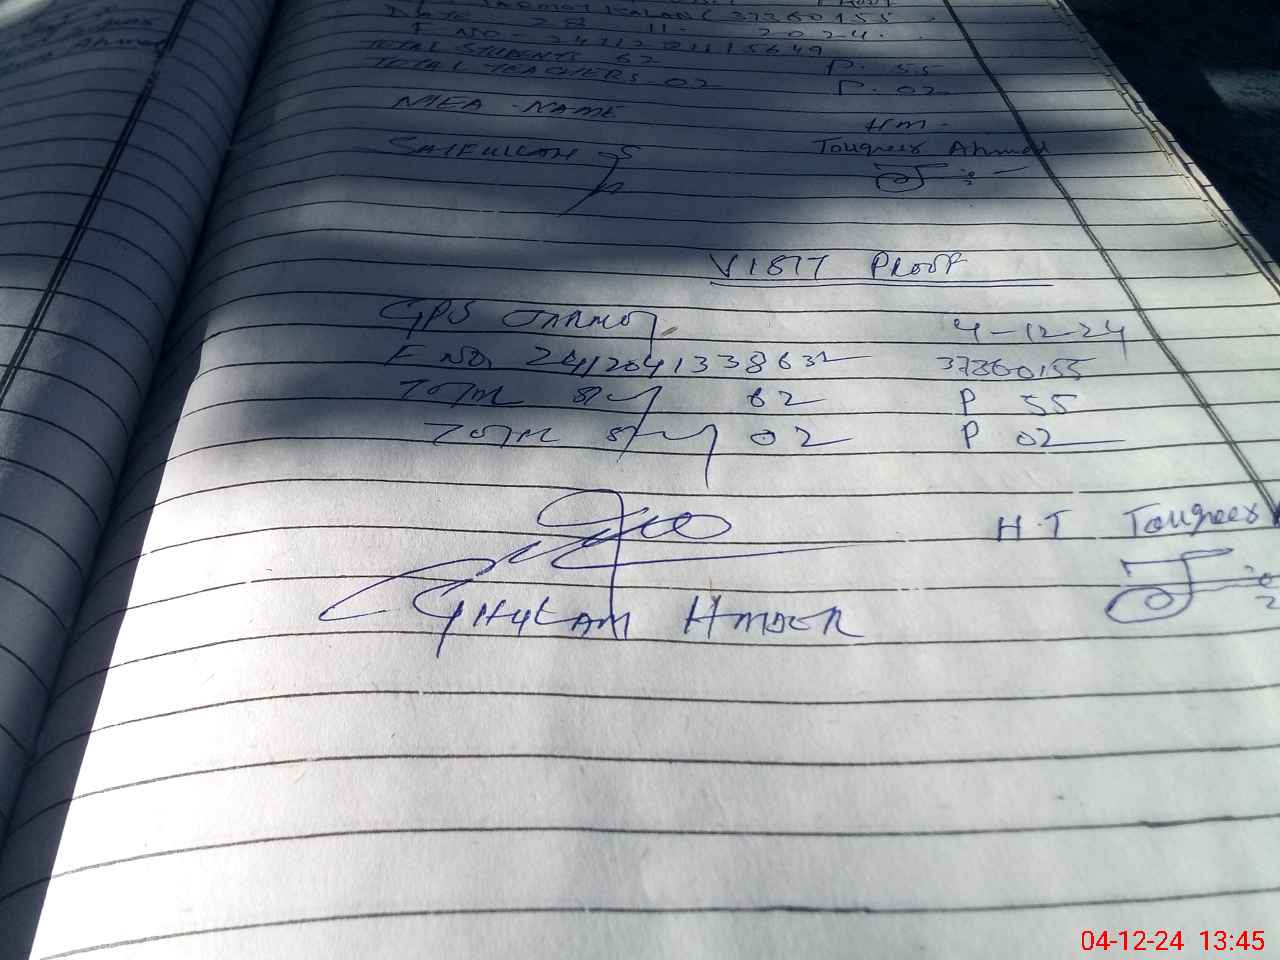 JARMOT KALAN (37360155
DATE 28 11. 2024.
F NO - 241128115649
TOTAL STUDENTS 62 P. 55
TOTAL TEACHERS - 02 P. 02
MEA - NAME HM.
SAIFULLAH Touqeer Ahmed
VISIT PROOF
GPS JARMOT 4-12-24
F NO. 241204133863 37360155
TOTAL 62 P 55
TOTAL 02 P 02
H.T Touqeer
GHULAM HAIDER
04-12-24 13:45